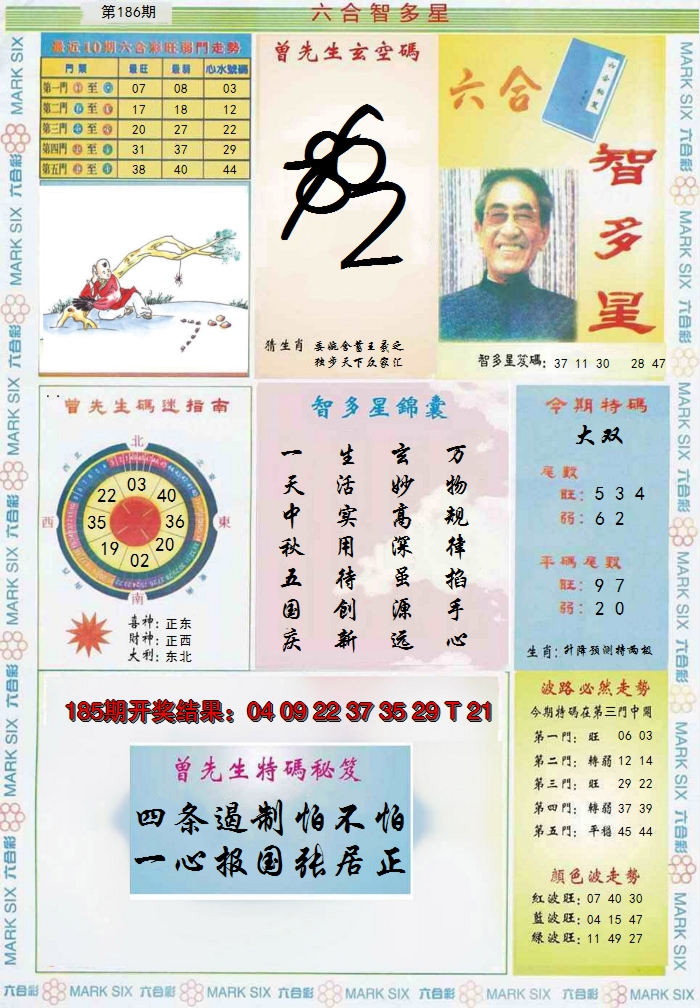 第186期
六合智多星
最近10期六合彩旺弱門走勢
門類 最旺 最弱 心水號碼
第一門 至 07 08 03
第二門 至 17 18 12
第三門 至 20 27 22
第四門 至 31 37 29
第五門 至 38 40 44
曾先生玄空碼
猜生肖 委婉含蓄王羲之
独步天下众家汇
六合
智多星
智多星笈碼: 37 11 30 28 47
曾先生碼迷指南
北
東
南
西
西北
東北
西南
東南
03
40
36
20
02
19
35
22
喜神: 正东
財神: 正西
大利: 东北
智多星錦囊
万物规律掐手心
玄妙高深虽源远
生活实用待创新
一天中秋五国庆
今期特碼
大双
尾数
旺: 5 3 4
弱: 6 2
平碼尾数
旺: 9 7
弱: 2 0
生肖: 升降预测特两极
185期开奖结果：04 09 22 37 35 29 T 21
曾先生特碼秘笈
四条遏制怕不怕
一心报国张居正
波路必然走勢
今期特碼在第三門中開
第一門: 旺 06 03
第二門: 轉弱 12 14
第三門: 旺 29 22
第四門: 轉弱 37 39
第五門: 平穩 45 44
顏色波走勢
紅波旺: 07 40 30
藍波旺: 04 15 47
綠波旺: 11 49 27
MARK SIX 六合彩 MARK SIX 六合彩 MARK SIX 六合彩 MARK SIX 六合彩 MARK SIX 六合彩